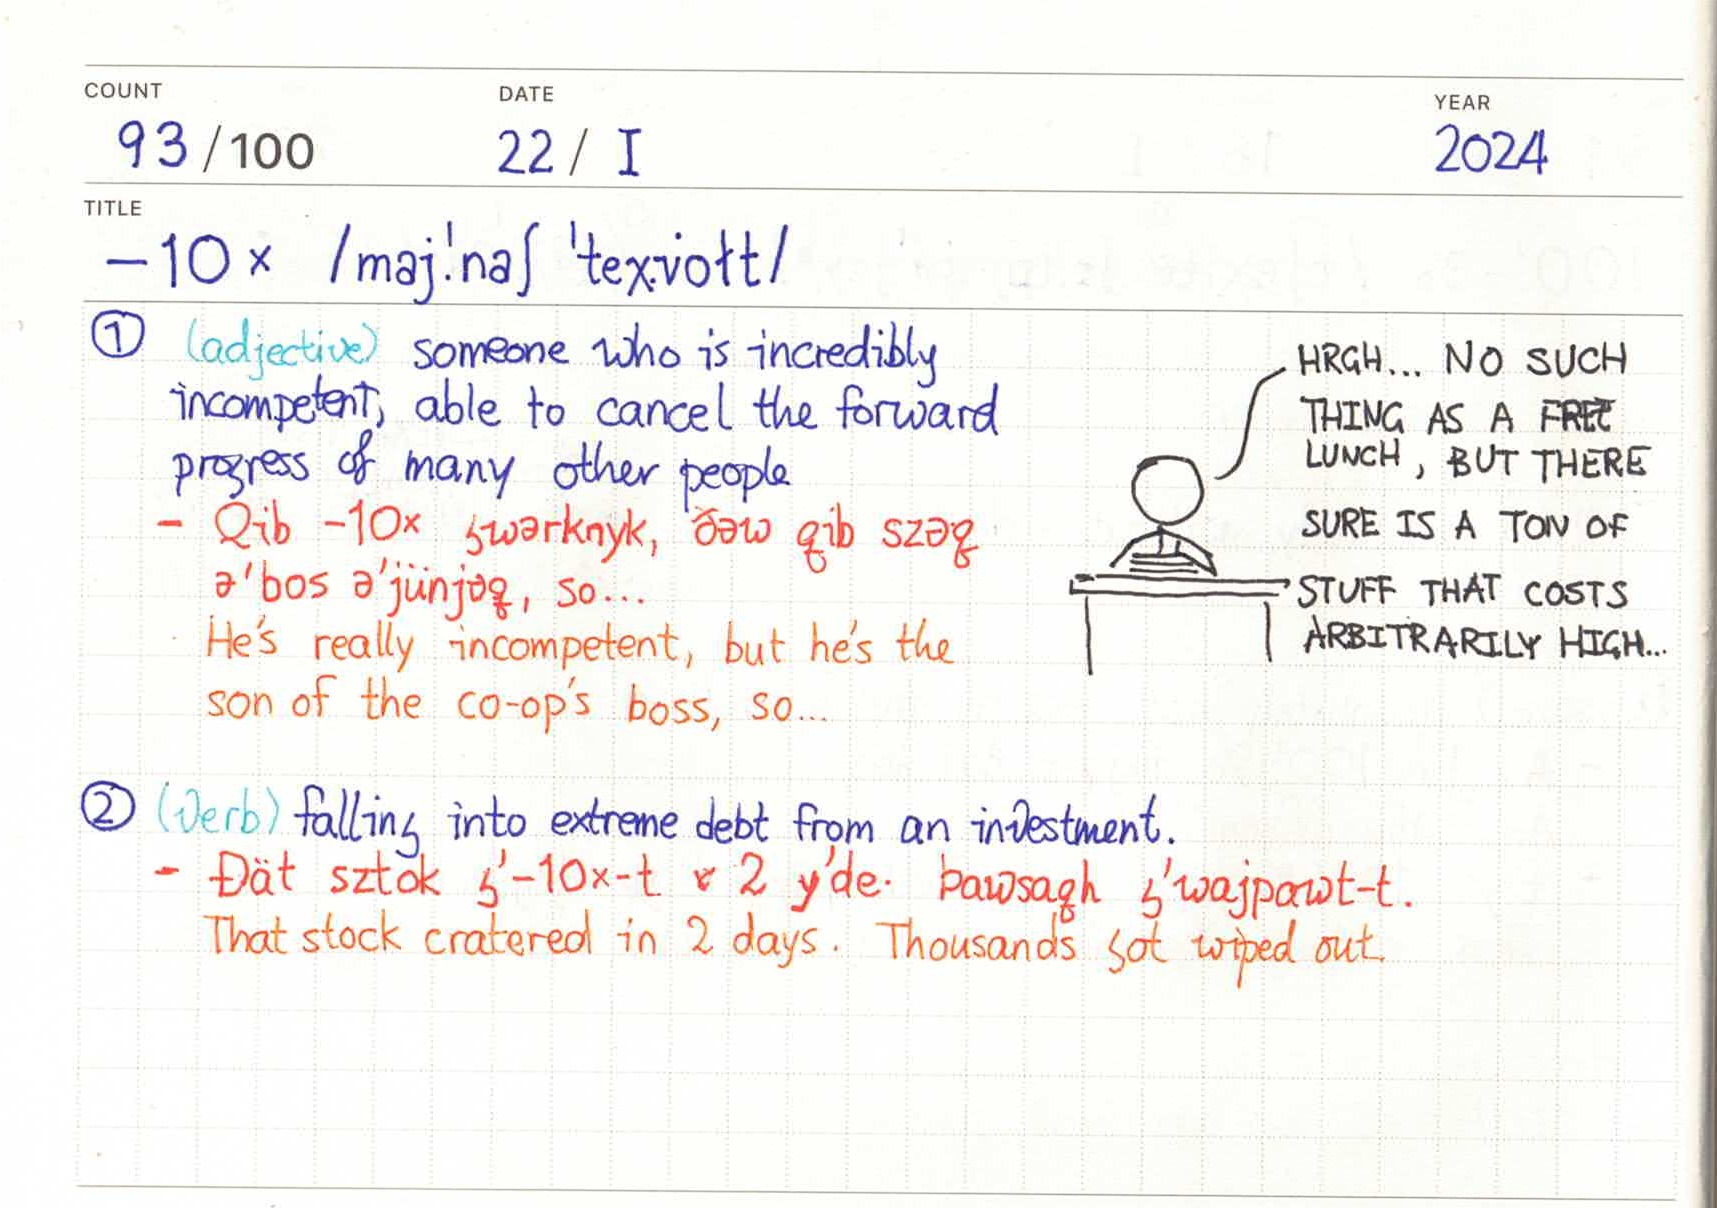 COUNT
93/100
DATE
22 / I
YEAR
2024
TITLE
-10× /maj.ˈnaʃ ˈtex.vołt/
① (adjective) someone who is incredibly
incompetent, able to cancel the forward
progress of many other people
- Qib -10× ʒwərknyk, ðəw qib szəq
ə'bos ə'jünjəq, so...
He's really incompetent, but he's the
son of the co-op's boss, so...
HRGH... NO SUCH
THING AS A FREE
LUNCH, BUT THERE
SURE IS A TON OF
STUFF THAT COSTS
ARBITRARILY HIGH...
② (verb) falling into extreme debt from an investment.
- Đät sztok ʒ'-10x-t 2 y'de. bawsaqh ʒ'wajpawt-t.
That stock cratered in 2 days. Thousands got wiped out.